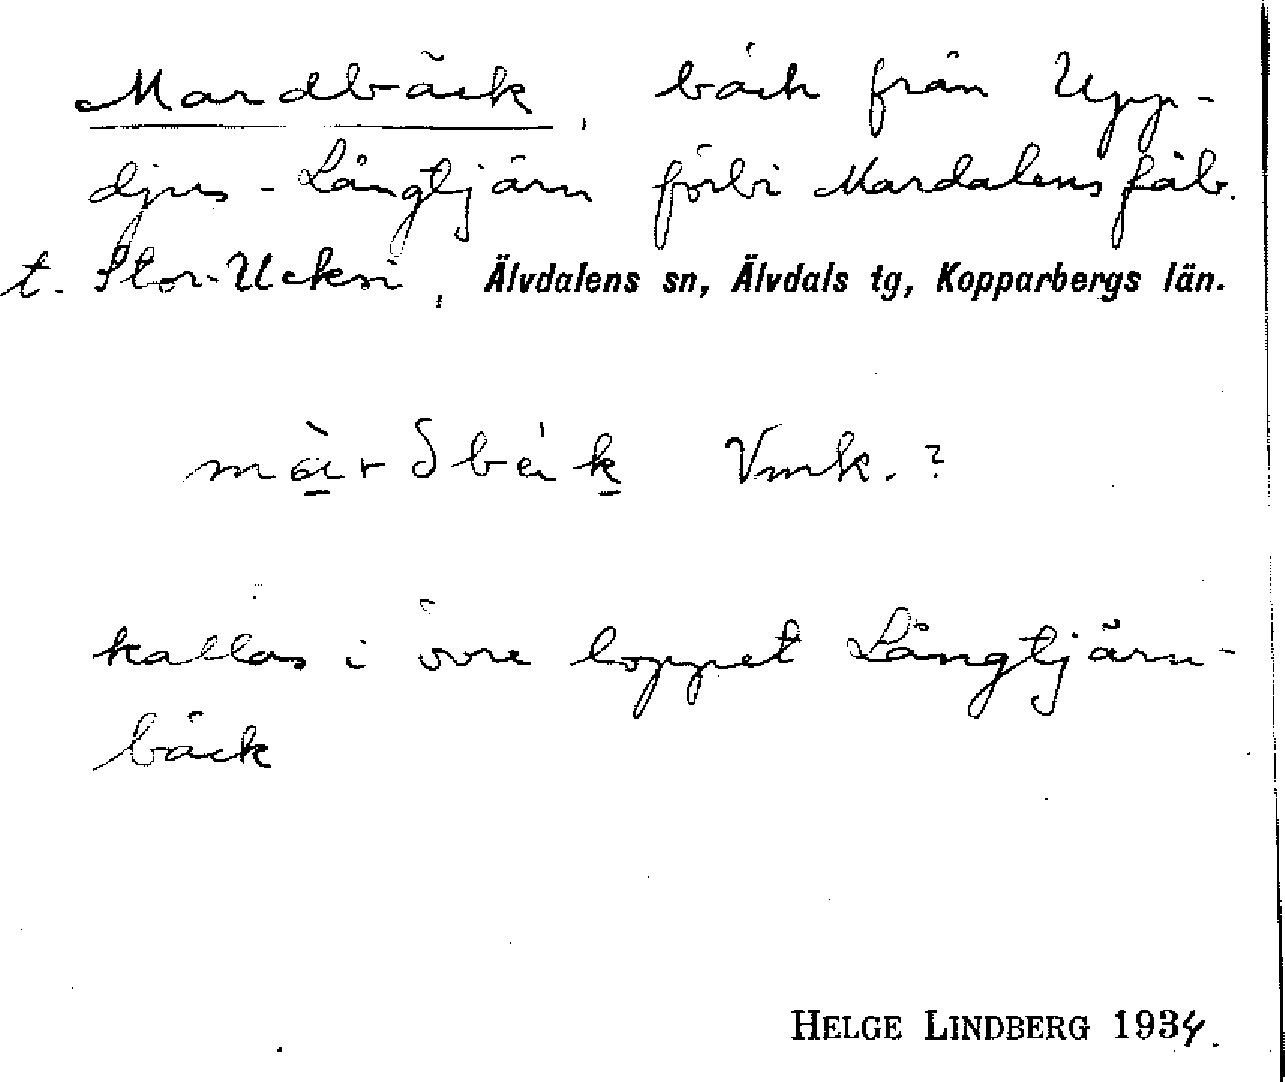 Mardbäck, bäck från Upp-
djus-Långtjärn förbi Mardalens fäb.
t. Stor-Ucksi, Älvdalens sn, Älvdals tg, Kopparbergs län.
màrδbäk Vmk.?
kallas i övre loppet Långtjärn-
bäck
HELGE LINDBERG 1934.